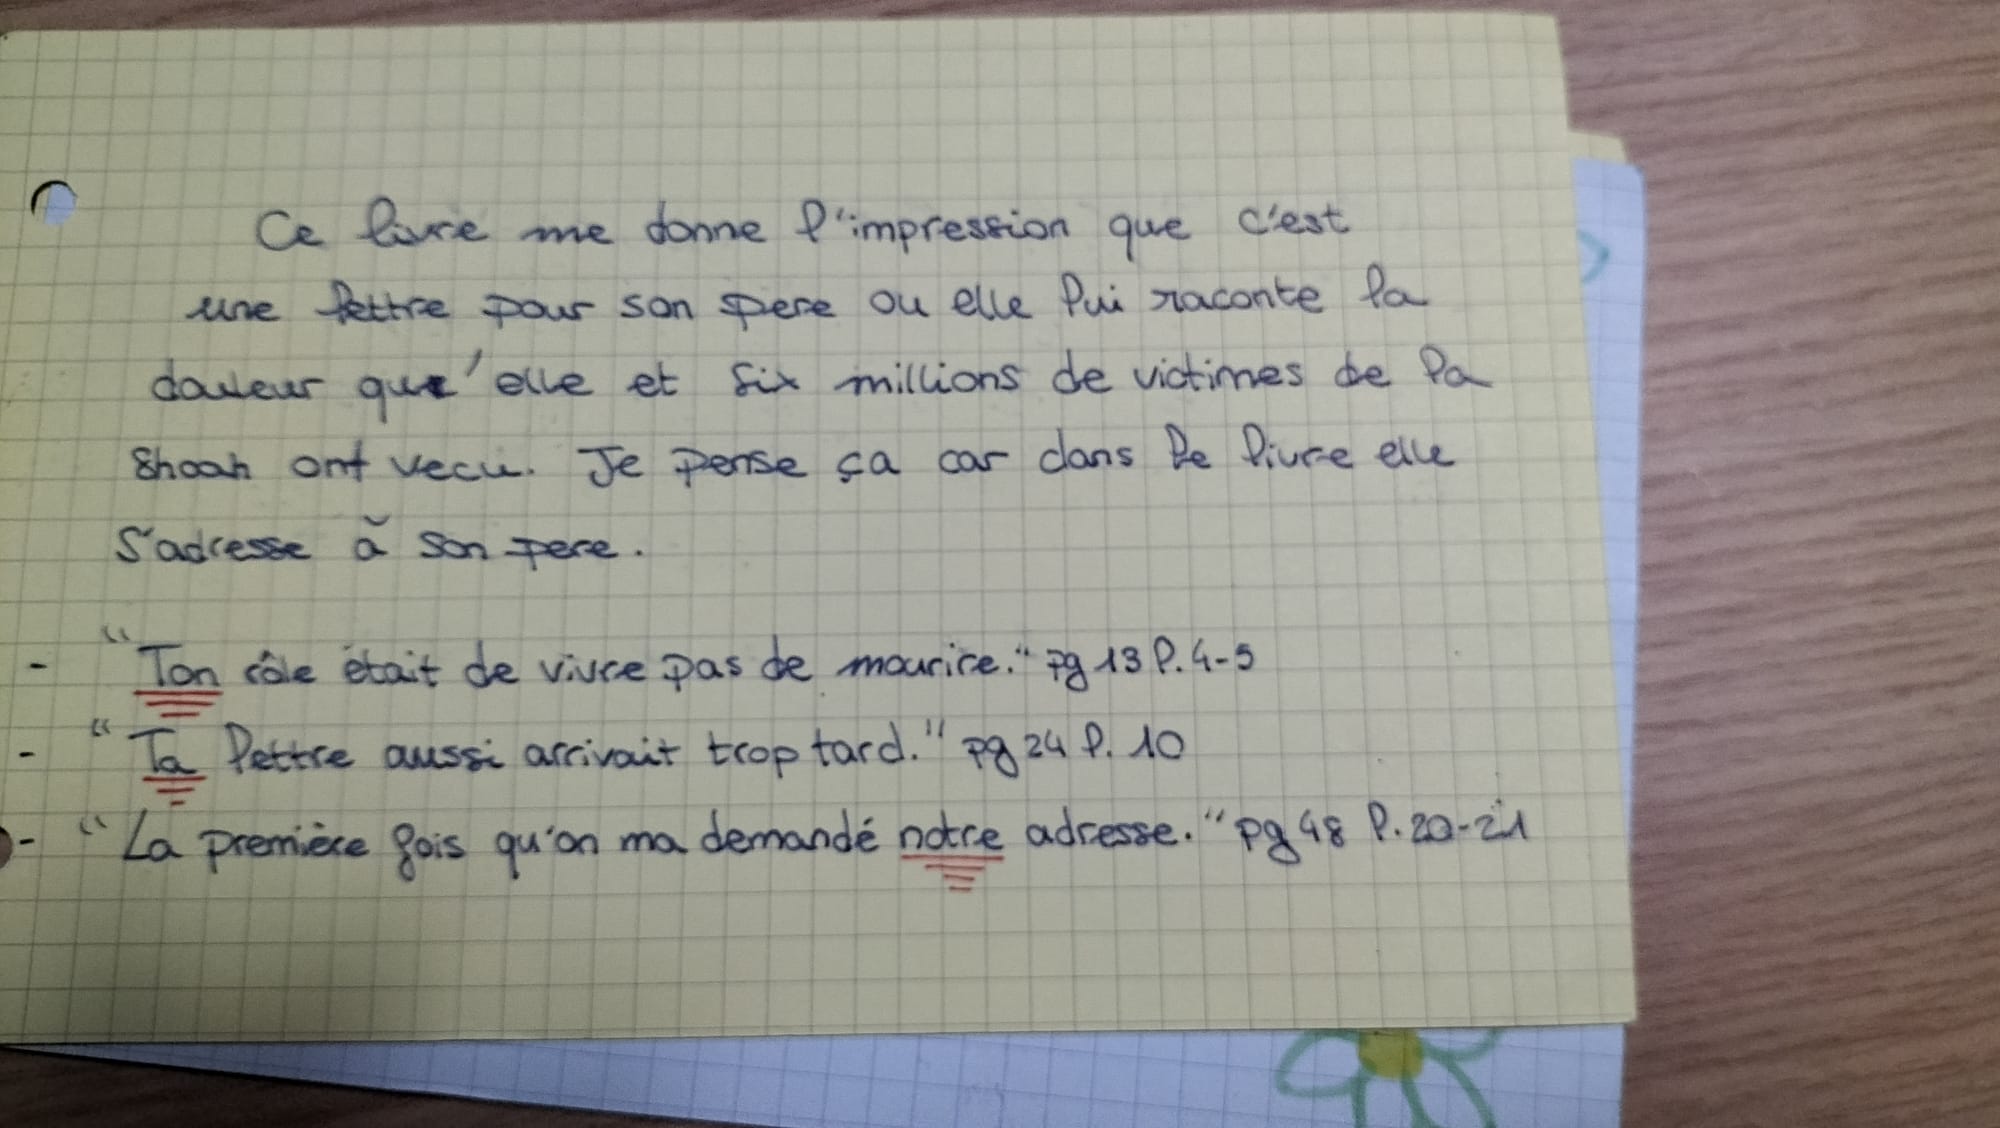 Ce livre me donne l'impression que c'est
une lettre pour son pere ou elle lui raconte la
douleur qu'elle et six millions de victimes de la
Shoah ont vecu. Je pense ça car dans le livre elle
s'adresse à son pere.
- "Ton rôle était de vivre pas de mourire." pg 13 l. 4-5
- "Ta lettre aussi arrivait trop tard." pg 24 l. 10
- "La première fois qu'on ma demandé notre adresse." pg 48 l. 20-21